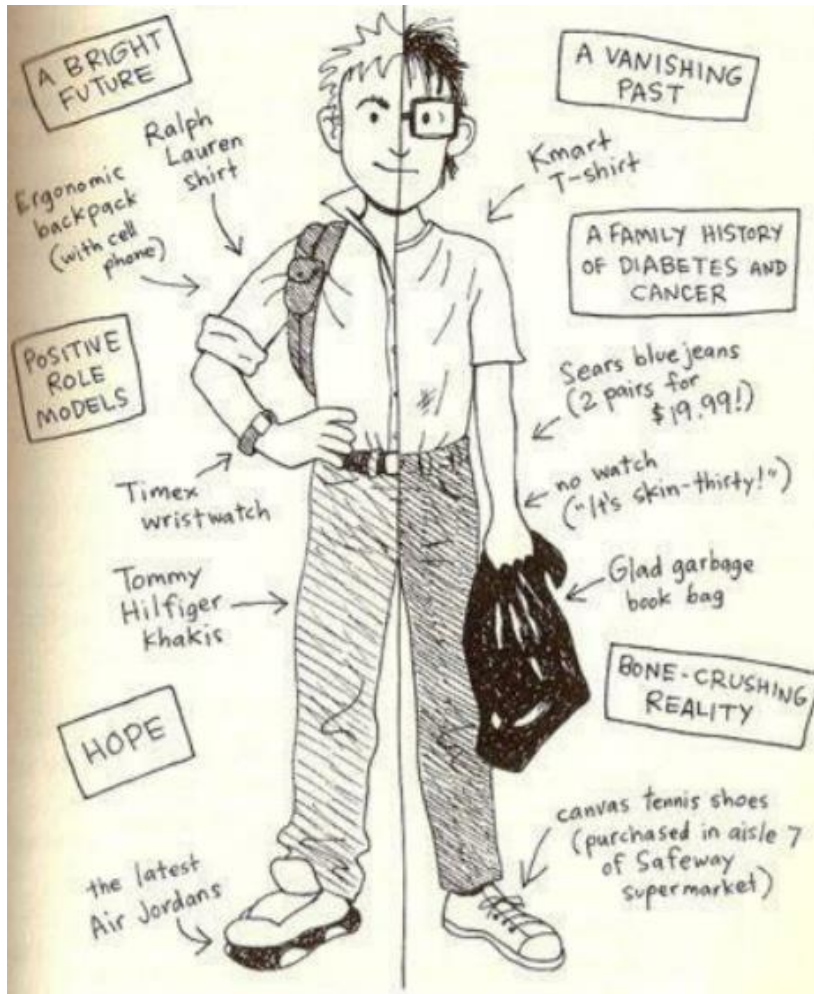 A BRIGHT
FUTURE
Ralph
Lauren
shirt
Ergonomic
backpack
(with cell
phone)
POSITIVE
ROLE
MODELS
Timex
wristwatch
Tommy
Hilfiger
Khakis
HOPE
the latest
Air Jordans
A VANISHING
PAST
Kmart
T-shirt
A FAMILY HISTORY
OF DIABETES AND
CANCER
Sears blue jeans
(2 pairs for
$19.99!)
no watch
("It's skin-thirty!")
Glad garbage
book bag
BONE-CRUSHING
REALITY
canvas tennis shoes
(purchased in aisle 7
of Safeway
supermarket)